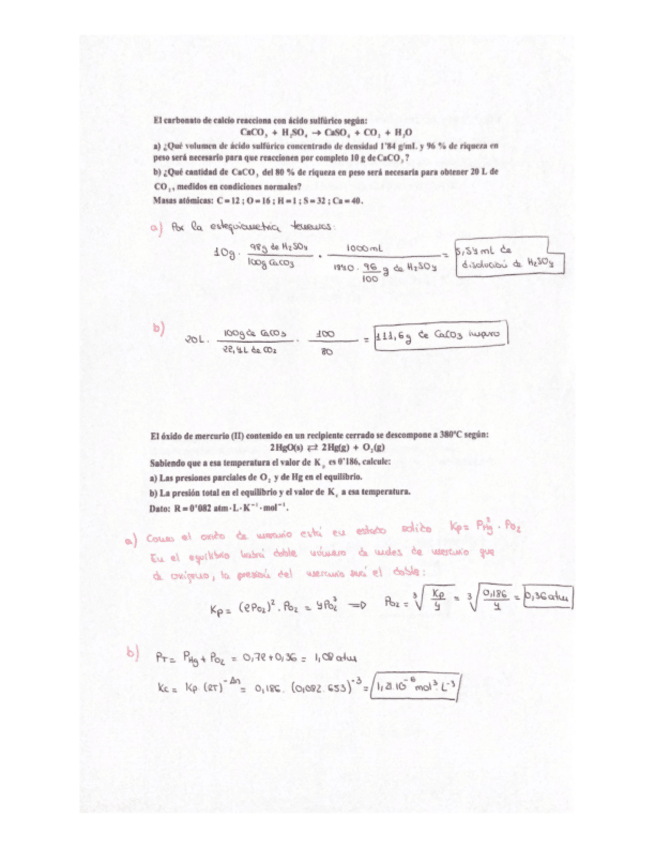 El carbonato de calcio reacciona con ácido sulfúrico según:
CaCO₃ + H₂SO₄ → CaSO₄ + CO₂ + H₂O
a) ¿Qué volumen de ácido sulfúrico concentrado de densidad 1'84 g/mL y 96 % de riqueza en
peso será necesario para que reaccionen por completo 10 g de CaCO₃?
b) ¿Qué cantidad de CaCO₃ del 80 % de riqueza en peso será necesaria para obtener 20 L de
CO₂, medidos en condiciones normales?
Masas atómicas: C = 12 ; O = 16 ; H = 1 ; S = 32 ; Ca = 40.
a) Por la estequiometria tenemos:
10g · 98g de H₂SO₄ / 100g CaCO₃ · 1000mL / 1840 · 96/100 g de H₂SO₄ = 5,54 mL de disolución de H₂SO₄
b) 20L · 100g de CaCO₃ / 22,4L de CO₂ · 100 / 80 = 111,6g de CaCO₃ impuro
El óxido de mercurio (II) contenido en un recipiente cerrado se descompone a 380ºC según:
2HgO(s) ⇄ 2Hg(g) + O₂(g)
Sabiendo que a esa temperatura el valor de Kₚ es 0'186, calcule:
a) Las presiones parciales de O₂ y de Hg en el equilibrio.
b) La presión total en el equilibrio y el valor de K꜀ a esa temperatura.
Dato: R = 0'082 atm·L·K⁻¹·mol⁻¹.
a) Como el oxido de mercurio está en estado solido Kp = P²Hg · PO₂
En el equilibrio habrá doble número de moles de mercurio que
de oxígeno, la presión del mercurio será el doble:
Kp = (2PO₂)² · PO₂ = 4PO₂³ ⇒ PO₂ = ³√(Kp/4) = ³√(0,186/4) = 0,36 atm
b) PT = PHg + PO₂ = 0,72 + 0,36 = 1,08 atm
Kc = Kp (RT)^-Δn = 0,186 · (0,082 · 653)⁻³ = 1,2·10⁻⁶ mol³·L⁻³